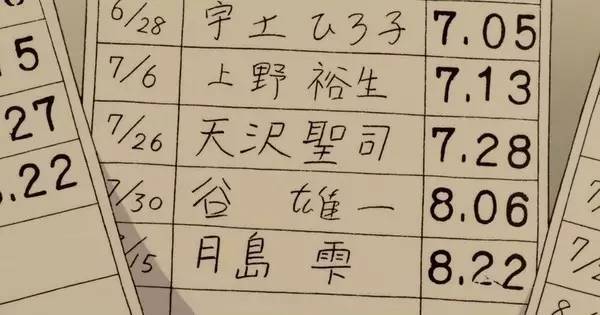 6/28 宇土ひろ子 7.05
7/6 上野裕生 7.13
7/26 天沢聖司 7.28
7/30 谷 雄一 8.06
/15 月島 雫 8.22
5
27
.22
7/
7/2
8/